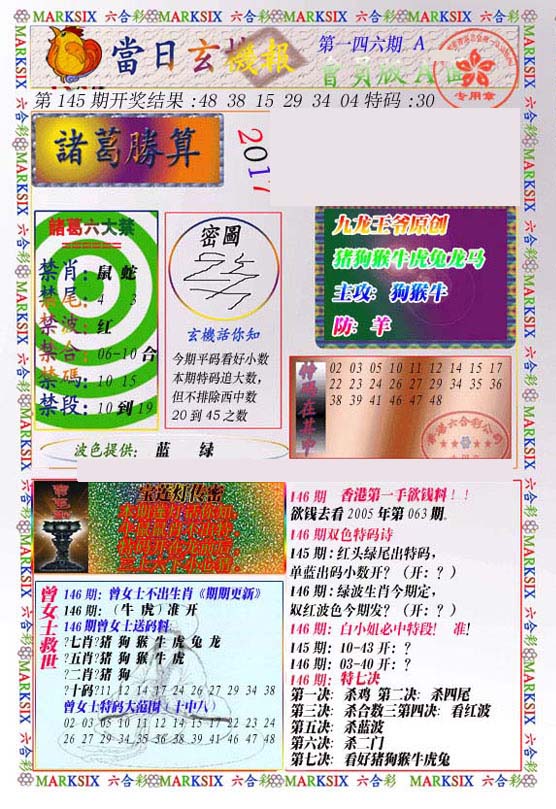 MARKSIX 六合彩 MARKSIX 六合彩 MARKSIX 六合彩 MARKSIX 六合彩 MARKSIX
當日玄機報
第一四六期 A
會員版A面
专用章
第 145 期开奖结果 :48 38 15 29 34 04 特码 :30
諸葛勝算
2017
諸葛六大禁
禁肖: 鼠 蛇
禁尾: 4 3
禁波: 红
禁合: 06-10 合
禁碼: 10 15
禁段: 10 到 19
密圖
玄機話你知
今期平码看好小数
本期特码追大数,
但不排除西中数
20 到 45 之数
九龙王爷原创
猪狗猴牛虎兔龙马
主攻: 狗猴牛
防: 羊
特码在其中
02 03 05 10 11 12 14 15 17
22 23 24 26 27 29 34 35 36
38 39 41 46 47 48
香港六合彩公司
波色提供: 蓝 绿
宝莲灯传密
146 期 香港第一手欲钱料!!
欲钱去看 2005 年第 063 期.
146 期双色特码诗
145 期: 红头绿尾出特码,
单蓝出码小数开? (开: ?)
146 期: 绿波生肖今期定,
双红波色今期发? (开: ?)
146 期: 白小姐必中特段! 准!
145 期: 10-43 开: ?
146 期: 03-40 开: ?
146 期: 特七决
第一决: 杀鸡 第二决: 杀四尾
第三决: 杀合数三第四决: 看红波
第五决: 杀蓝波
第六决: 杀二门
第七决: 看好猪狗猴牛虎兔
曾女士救世
146 期: 曾女士不出生肖《期期更新》
146 期: (牛 虎) 准 开
146 期曾女士送码料
?七肖?猪 狗 猴 牛 虎 兔 龙
?五肖?猪 狗 猴 牛 虎
?二肖?猪 狗
?十码?11 12 14 17 24 26 27 29 34 38
曾女士特码大范围 (十中八)
02 03 05 10 11 12 14 15 17 22 23 24
26 27 29 34 35 36 38 39 41 46 47 48
MARKSIX 六合彩 MARKSIX 六合彩 MARKSIX 六合彩 MARKSIX 六合彩 MARKSIX